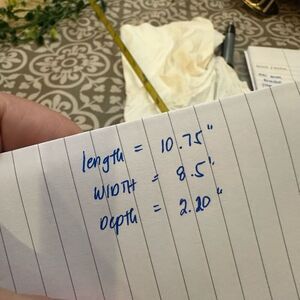 length = 10.75"
WIDTH = 8.5"
Depth = 2.20"